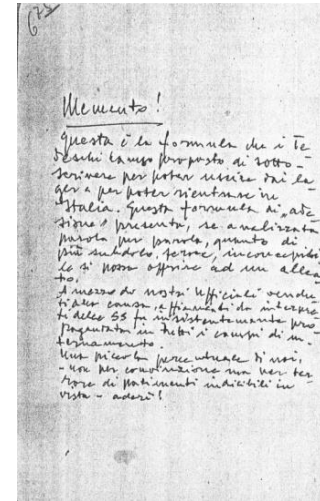 675
Memento!
Questa è la formula che i Te
deschi hanno proposto di sotto-
scrivere per poter uscire dai la
ger e per poter rientrare in
Italia. Questa formula di "ade
sione" presenta, se analizzata
parola per parola, quanto di
più subdolo, feroce, inconcepibi
le si possa offrire ad un allea
to.
A mezzo dei nostri Ufficiali vendu
ti alla causa, e da interpre
ti delle SS fu insistentemente pro
pagandata in tutti i campi di in-
ternamento.
Una piccola percentuale di noi,
- non per convinzione ma per ter
rore di patimenti indicibili in
vista - aderì!